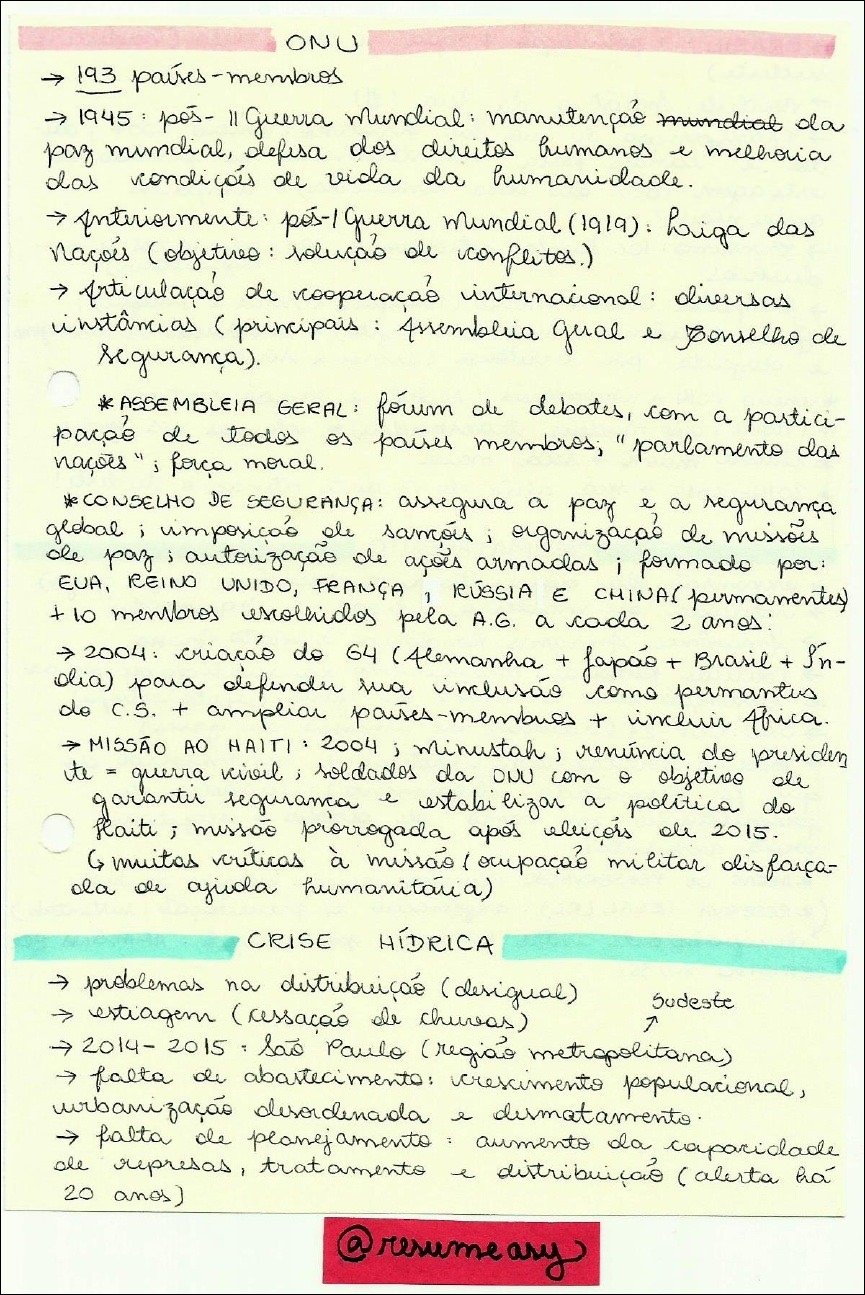 ONU
→ 193 países-membros
→ 1945: pós- II Guerra Mundial: manutenção mundial da
paz mundial, defesa dos direitos humanos e melhoria
das condições de vida da humanidade.
→ Anteriormente: pós-I Guerra Mundial (1919): Liga das
Nações (objetivo: solução de conflitos.)
→ Articulação de cooperação internacional: diversas
instâncias (principais: Assembleia Geral e Conselho de
Segurança).
*ASSEMBLEIA GERAL: fórum de debates, com a partici-
pação de todos os países membros; "parlamento das
nações"; força moral.
*CONSELHO DE SEGURANÇA: assegura a paz e a segurança
global; imposição de sanções; organização de missões
de paz; autorização de ações armadas; formado por:
EUA, REINO UNIDO, FRANÇA, RÚSSIA E CHINA (permanentes)
+ 10 membros escolhidos pela A.G. a cada 2 anos.
→ 2004: criação do G4 (Alemanha + Japão + Brasil + Ín-
dia) para defender sua inclusão como permanentes
do C.S. + ampliar países-membros + incluir África.
→ MISSÃO AO HAITI: 2004; Minustah; renúncia do presiden
te = guerra civil; soldados da ONU com o objetivo de
garantir segurança e estabilizar a política do
Haiti; missão prorrogada após eleições de 2015.
↳ muitas críticas à missão (ocupação militar disfarça-
da de ajuda humanitária)
CRISE HÍDRICA
→ problemas na distribuição (desigual)
→ estiagem (cessação de chuvas)
Sudeste
↗
→ 2014-2015: São Paulo (região metropolitana)
→ falta de abastecimento: crescimento populacional,
urbanização desordenada e desmatamento.
→ falta de planejamento: aumento da capacidade
de represas, tratamento e distribuição (alerta há
20 anos)
@resumeasy